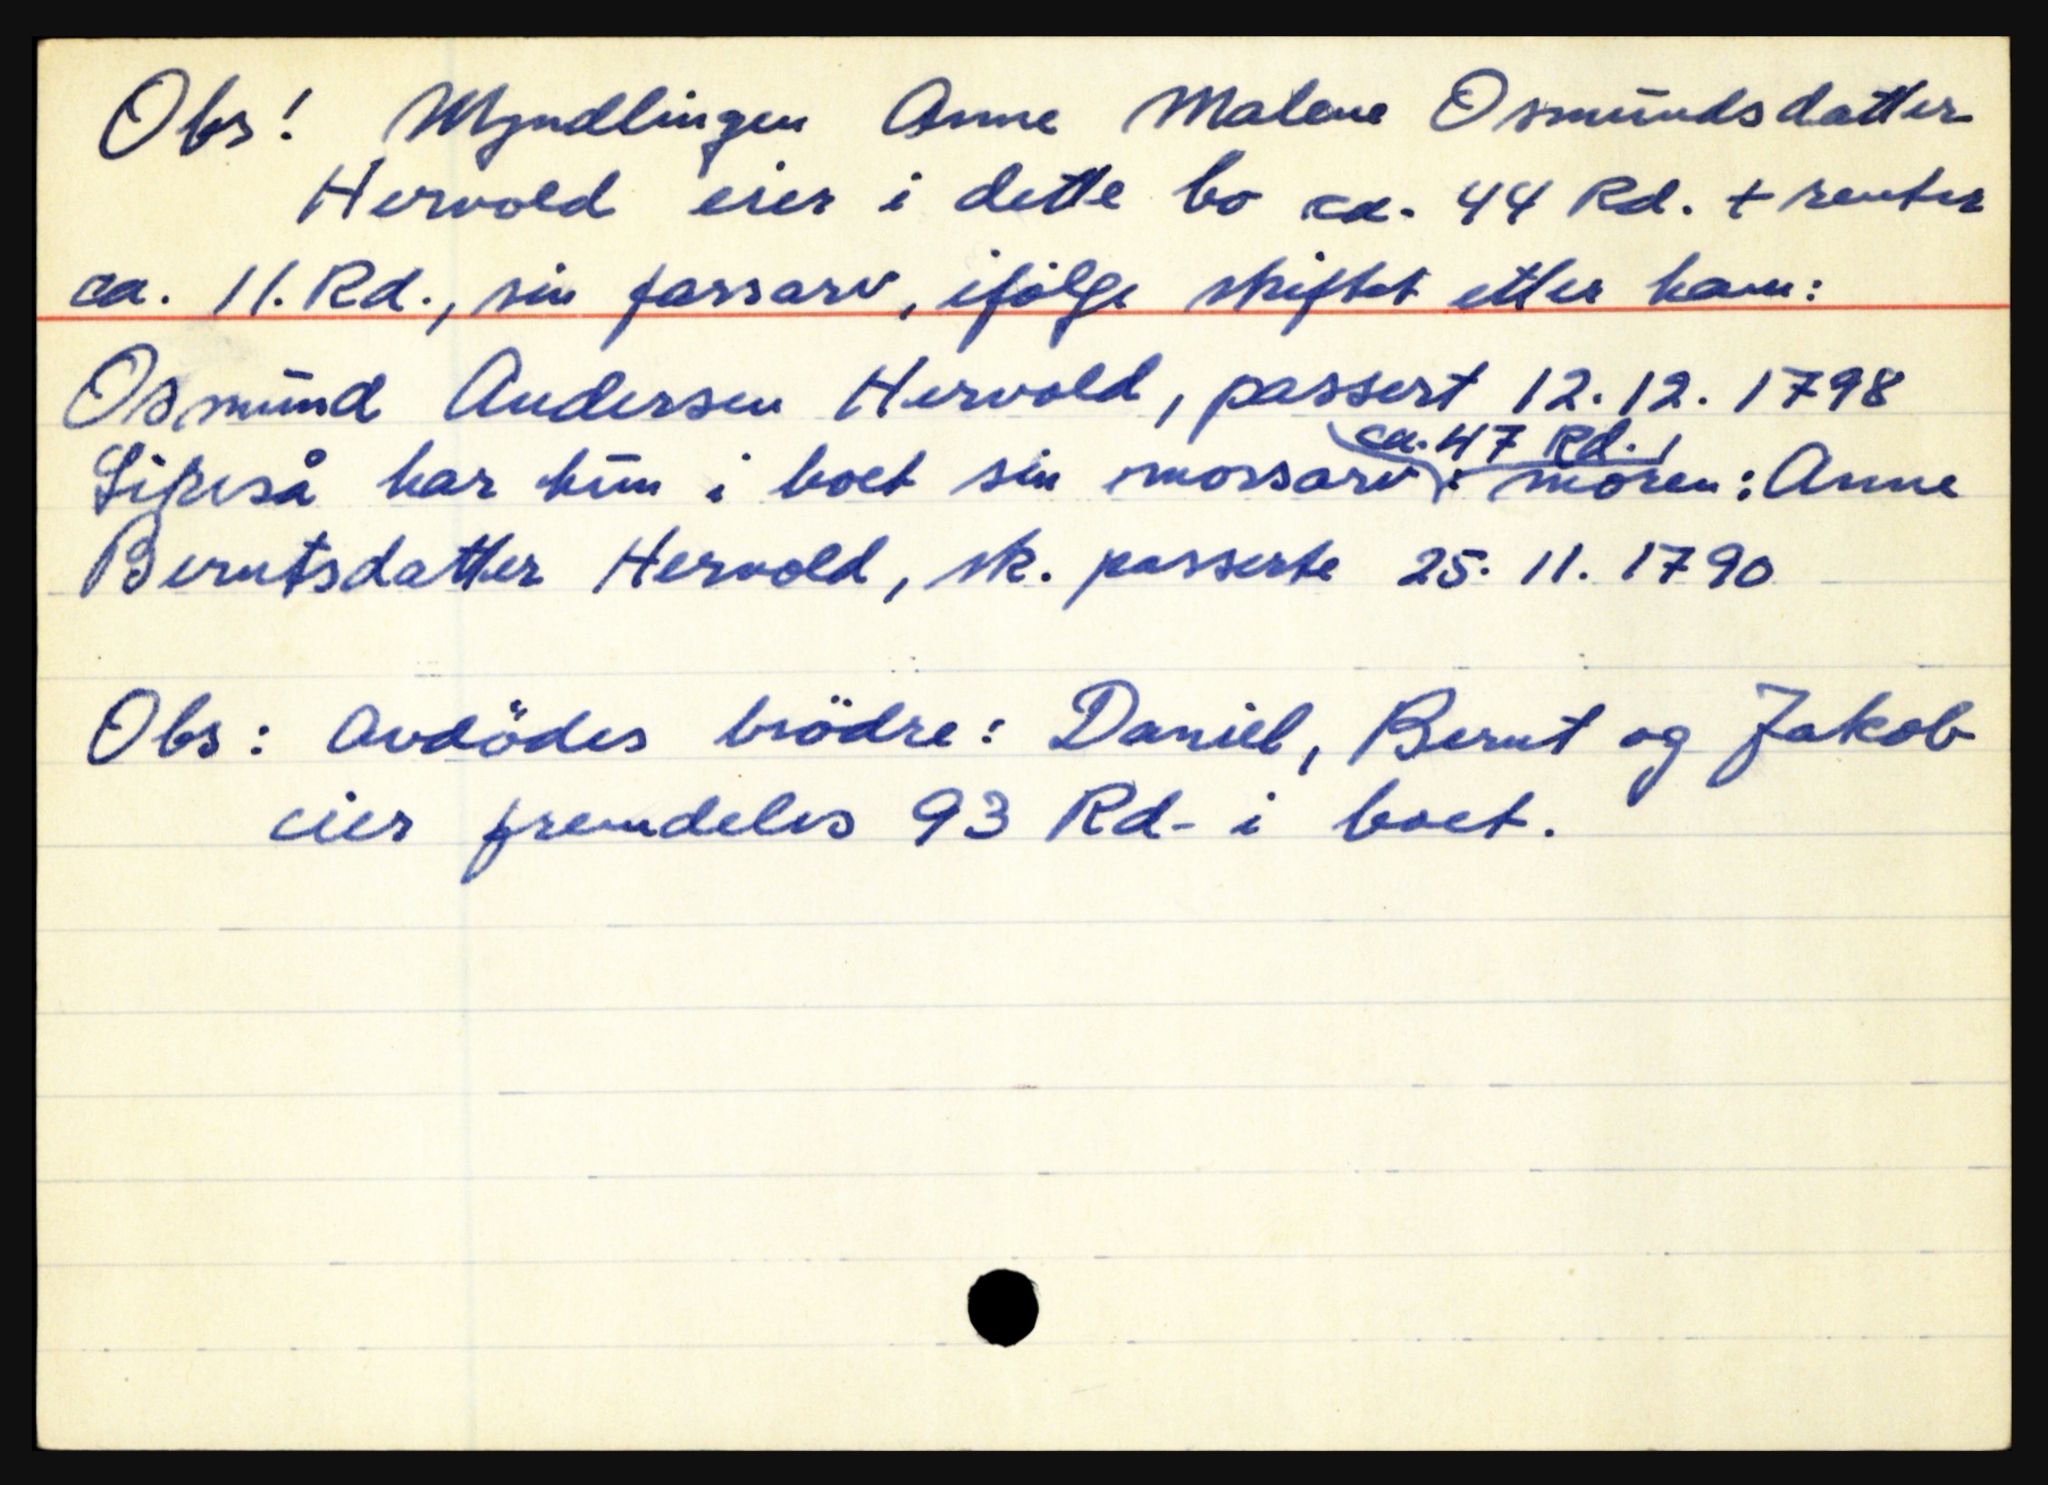 Obs! Myndlingen Anne Malene Osmundsdatter
Hervold eier i dette bo ca. 44 Rd. + renter
ca. 11. Rd., sin farsarv, ifölge skiftet etter ham:
Osmund Andersen Hervold, passert 12.12.1798
ca. 47 Rd.,
Likeså har hun i boet sin morsarv: moren: Anne
Berntsdatter Hervold, sk. passerte 25.11.1790
Obs: avdödes brödre: Daniel, Bernt og Jakob
eier fremdeles 93 Rd- i boet.